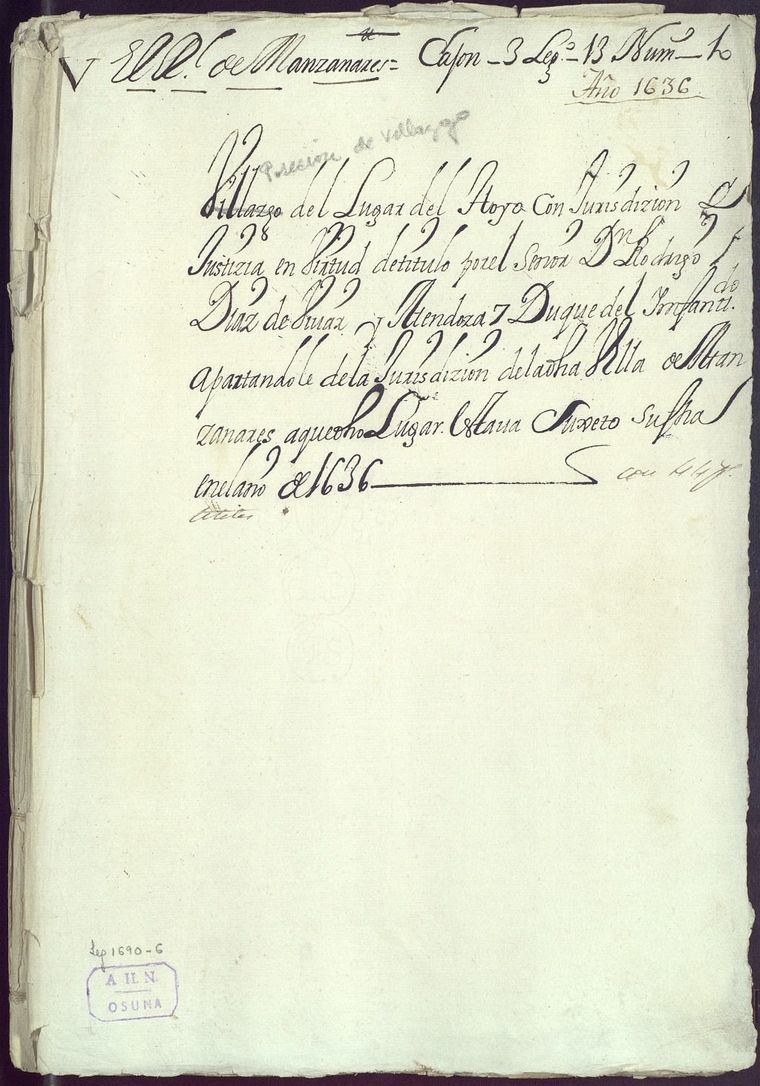 El Rl. de Manzanares = Cajon - 3 Lego. - 13 Numo - 1o
Año 1636
de Villazgo
Villazgo del Lugar del Hoyo Con Jurisdizion
Justizia en Virtud de titulo por el Señor Dn Rodrigo
Diaz de Viuar y Mendoza 7 Duque del Infantado.
apartandole de la Jurisdizion de la dha Villa de Man
zanares aque dho Lugar. Estaua Suxeto su fha
en el año de 1636
con
Leg 1690-6
A. H. N.
OSUNA